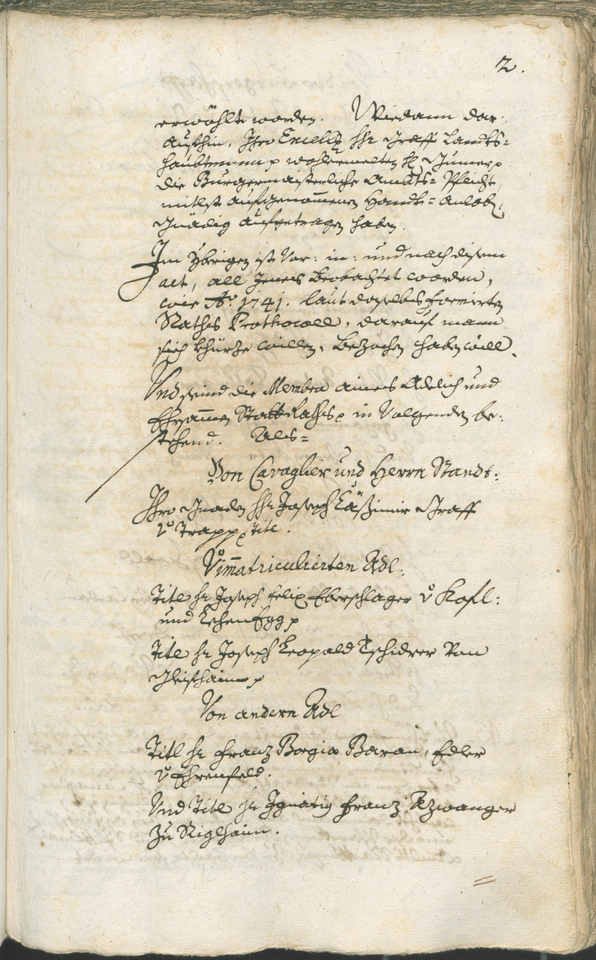 2.
erwöhlt worden. Wiedann dar¬
aufhin, Ihro Excellz hh: Graff Landts-
haubtman p wohlermelten H: 
die Burgermaisterliche Ambts-Pflicht
mitlst aufgenommenen Handt-Anlob,
gnädig aufgetragen haben.
Im Ybrigen ist Vor: in: und nach disem
act, all Jenes beobachtet worden,
wie Ao. 1741. laut daselbs formirten
Raths Prothocoll, darauf mann
sich khürze willen, bezochen haben will.
Und seind die Membra aines Adelich und
Ehrsamen Statt Raths p in Volgenden be-
stehend. Als=
Von Cavaglier und Herrn Standt:
Ihro Gnaden hh: Joseph Cäßimir Graff
v: Trapp p Titl.
V: Immatriculierten Adl:
Titl h: Joseph Felix Eberschlager v: Kofl:
und Lehenegg p
Titl h: Joseph Leopold Tschidrer Von
Gleifhaimb p
Von andern Adl
Titl h: Franz Borgia Baron, Edler
v: Ehrenfeld.
Und Titl h: Ignatig Franz Azwanger
zu Riglhaim.